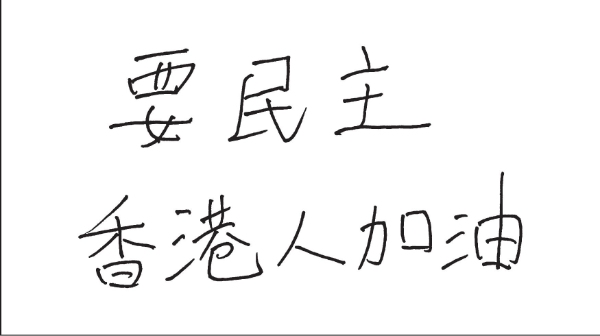 要民主
香港人加油